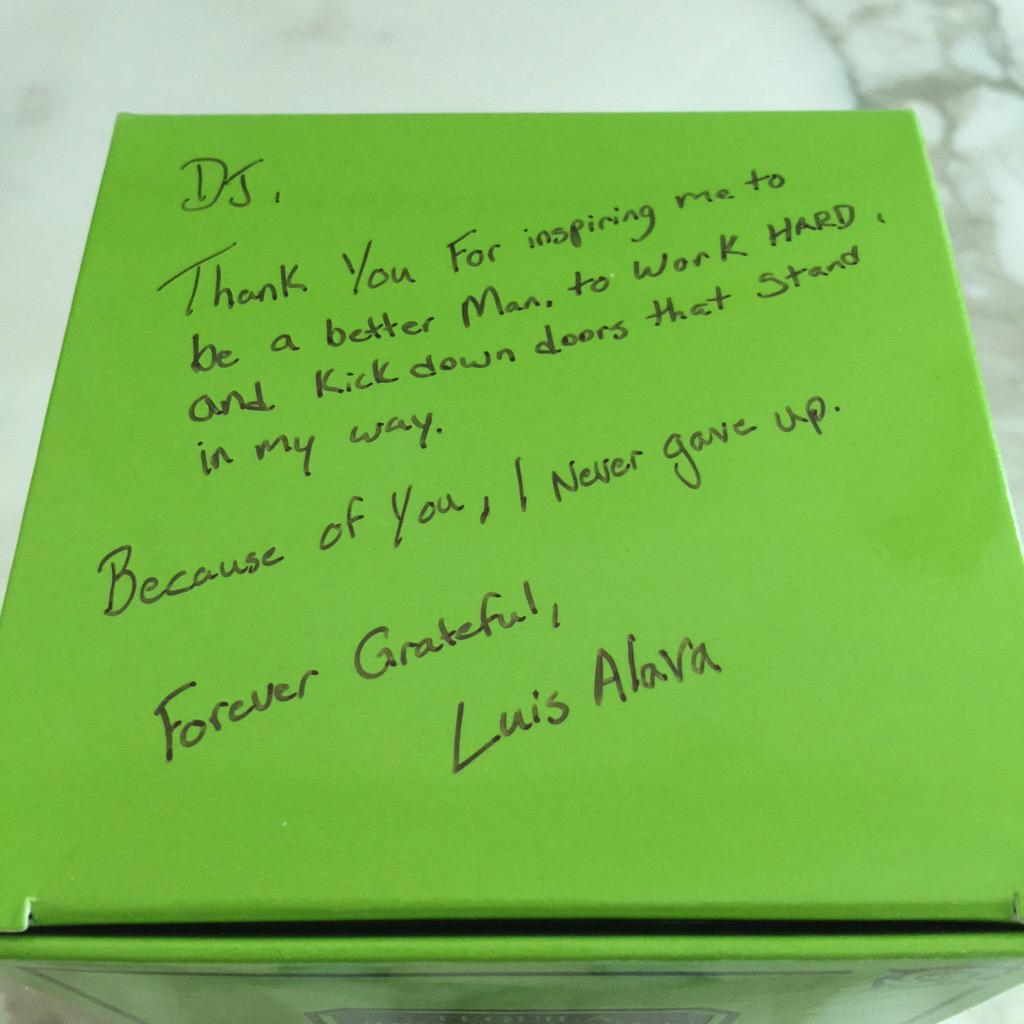 DJ,
Thank You For inspiring me to
be a better Man, to Work HARD,
and Kick down doors that Stand
in my way.
Because of You, I Never gave up.
Forever Grateful,
Luis Alava
TEQUILA